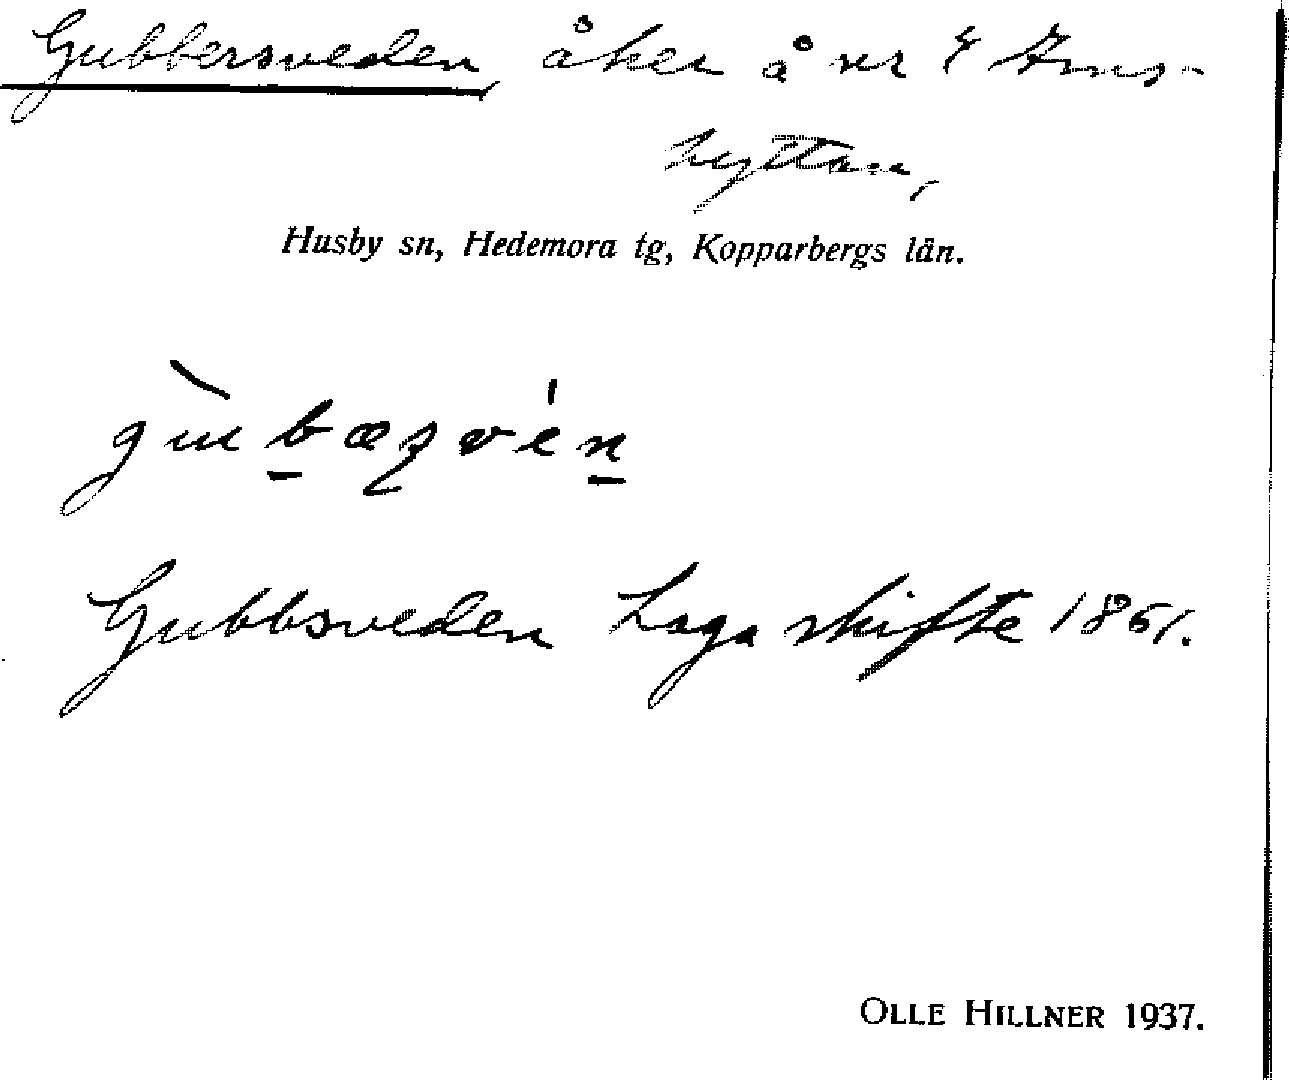 Gubbersveden, åker å nr 4
hyttan,
Husby sn, Hedemora tg, Kopparbergs län.
Gubbsveden Laga skifte 1861.
OLLE HILLNER 1937.